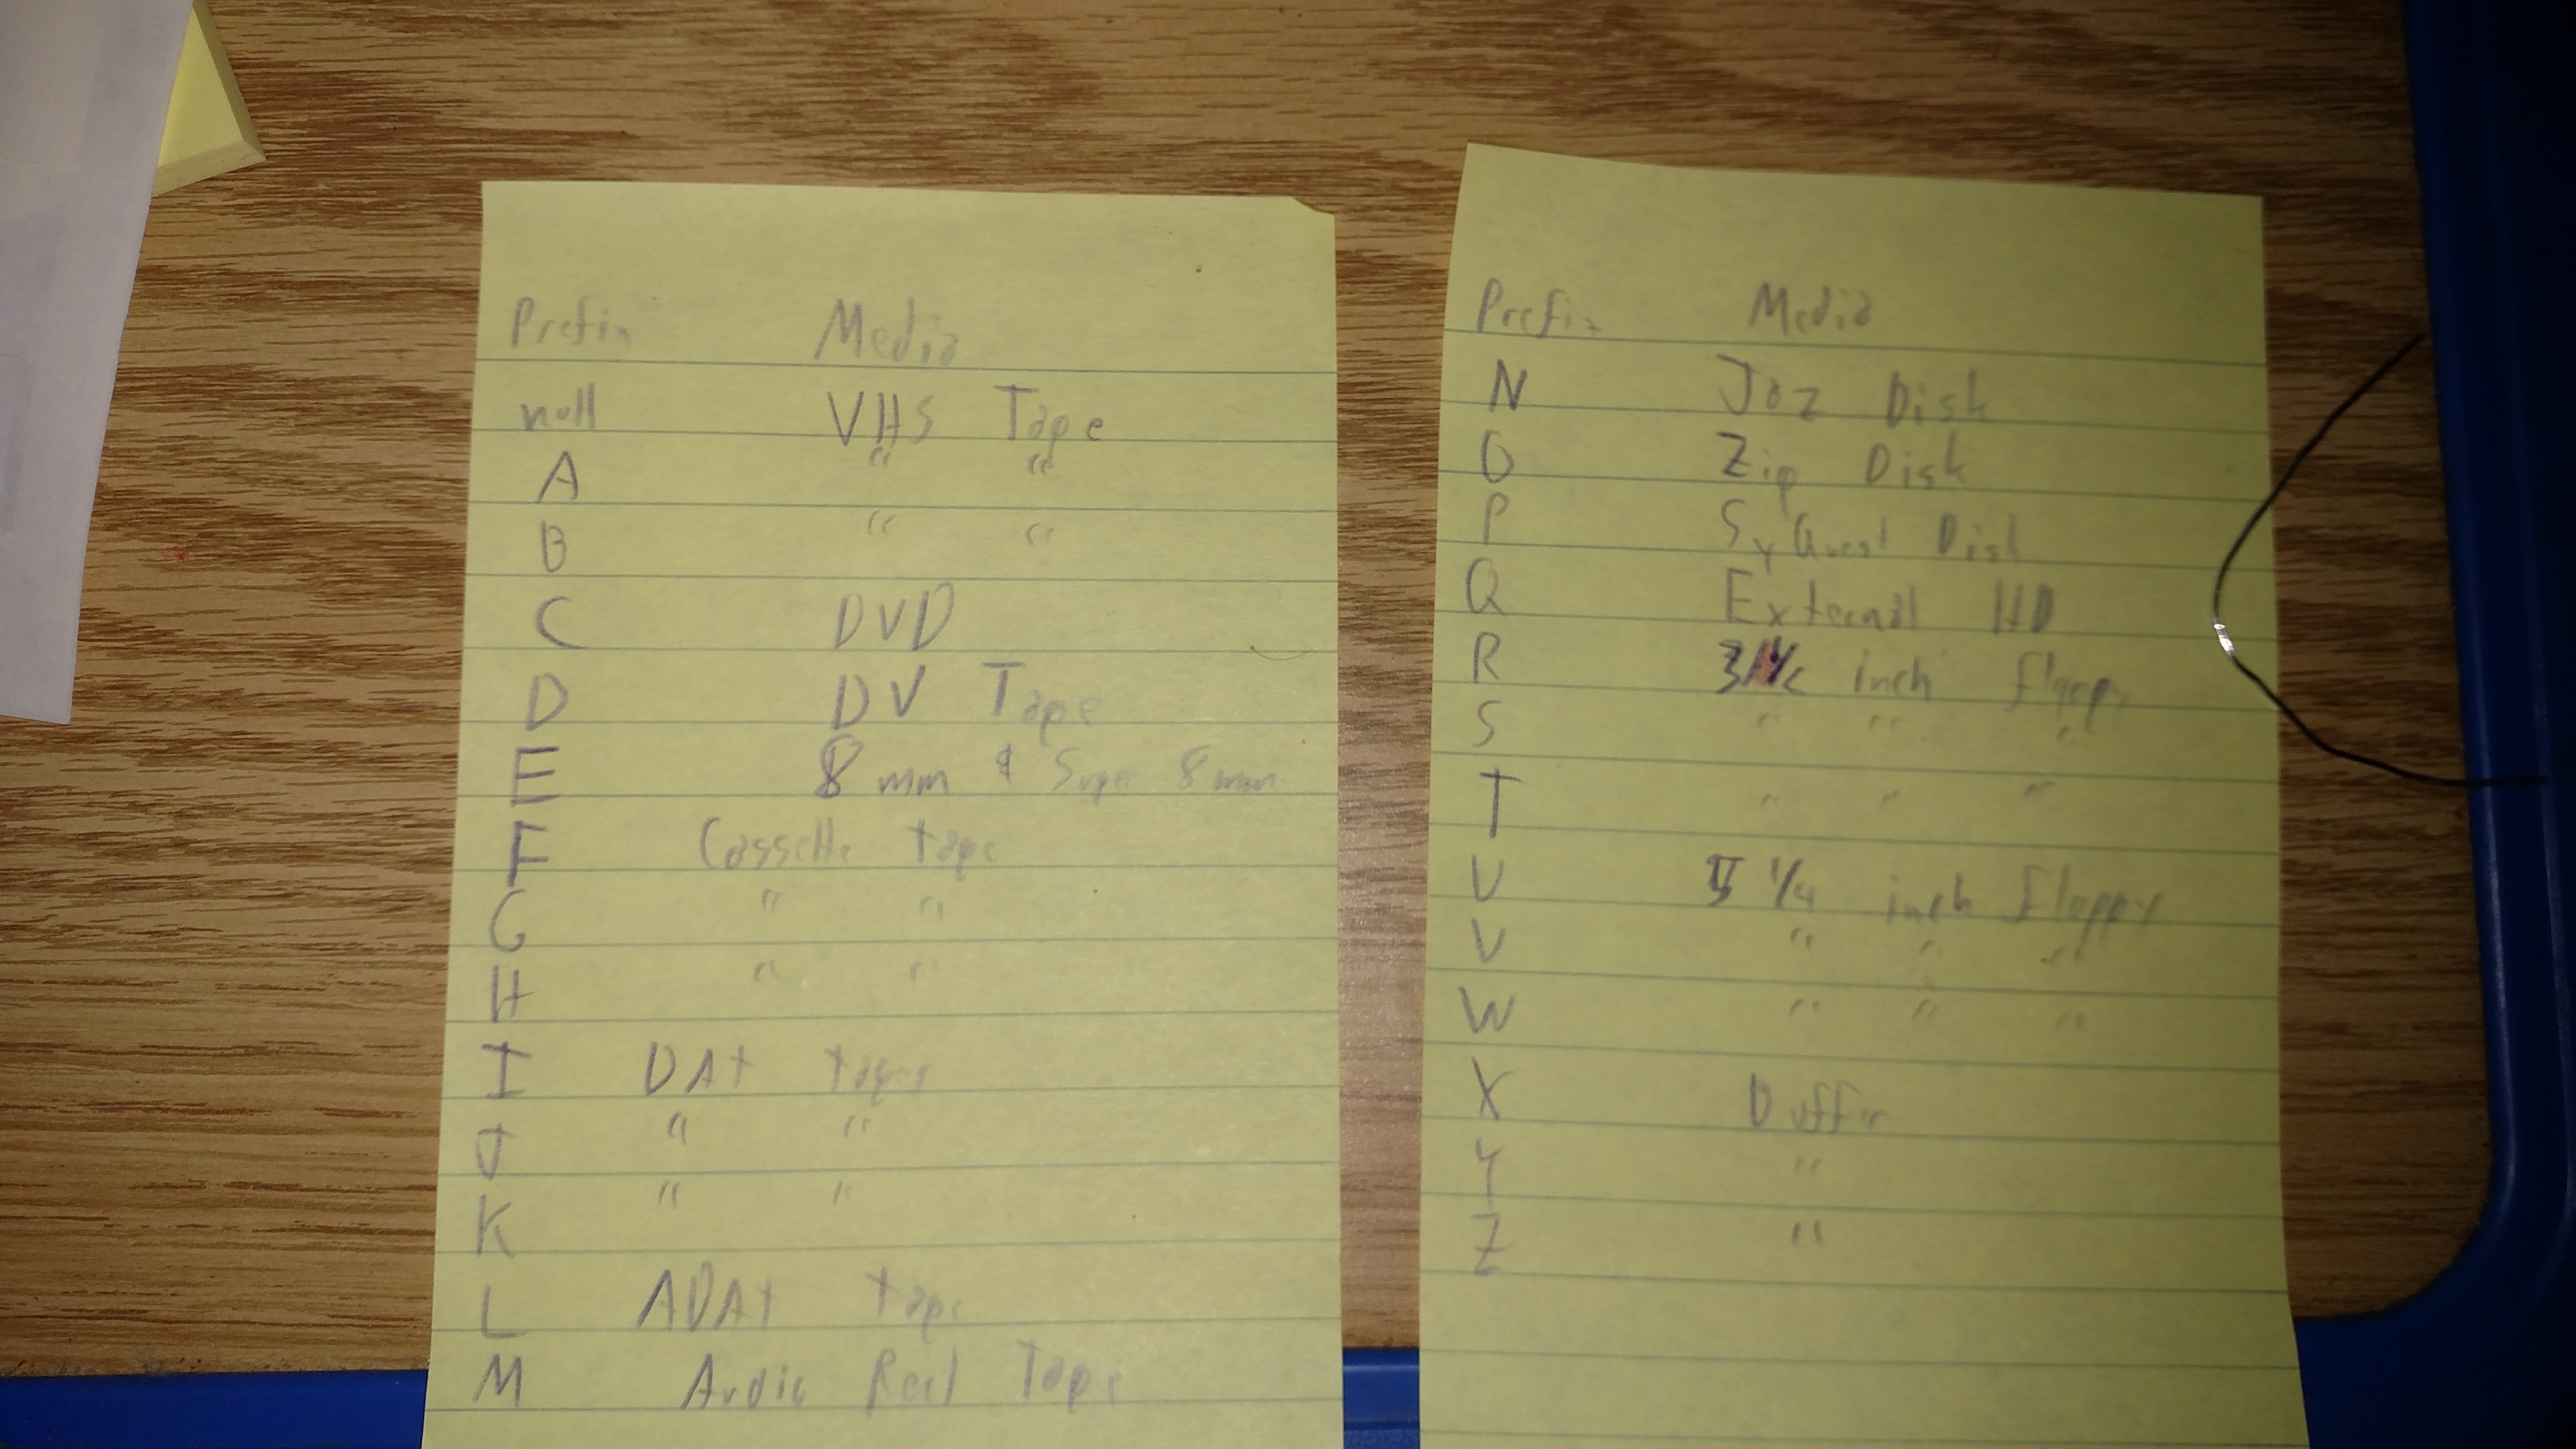 Prefix Media
null VHS Tape
A " "
B " "
C DVD
D DV Tape
E 8 mm & Super 8 mm
F Cassette tape
G " "
H " "
I DAt tapes
J " "
K " "
L ADAt tape
M Audio Reel Tape
Prefix Media
N Jaz Disk
O Zip Disk
P SyQuest Disk
Q External HD
R 3 1/2 inch floppy
S " " "
T " " "
U 5 1/4 inch floppy
V " " "
W " " "
X
Y "
Z "